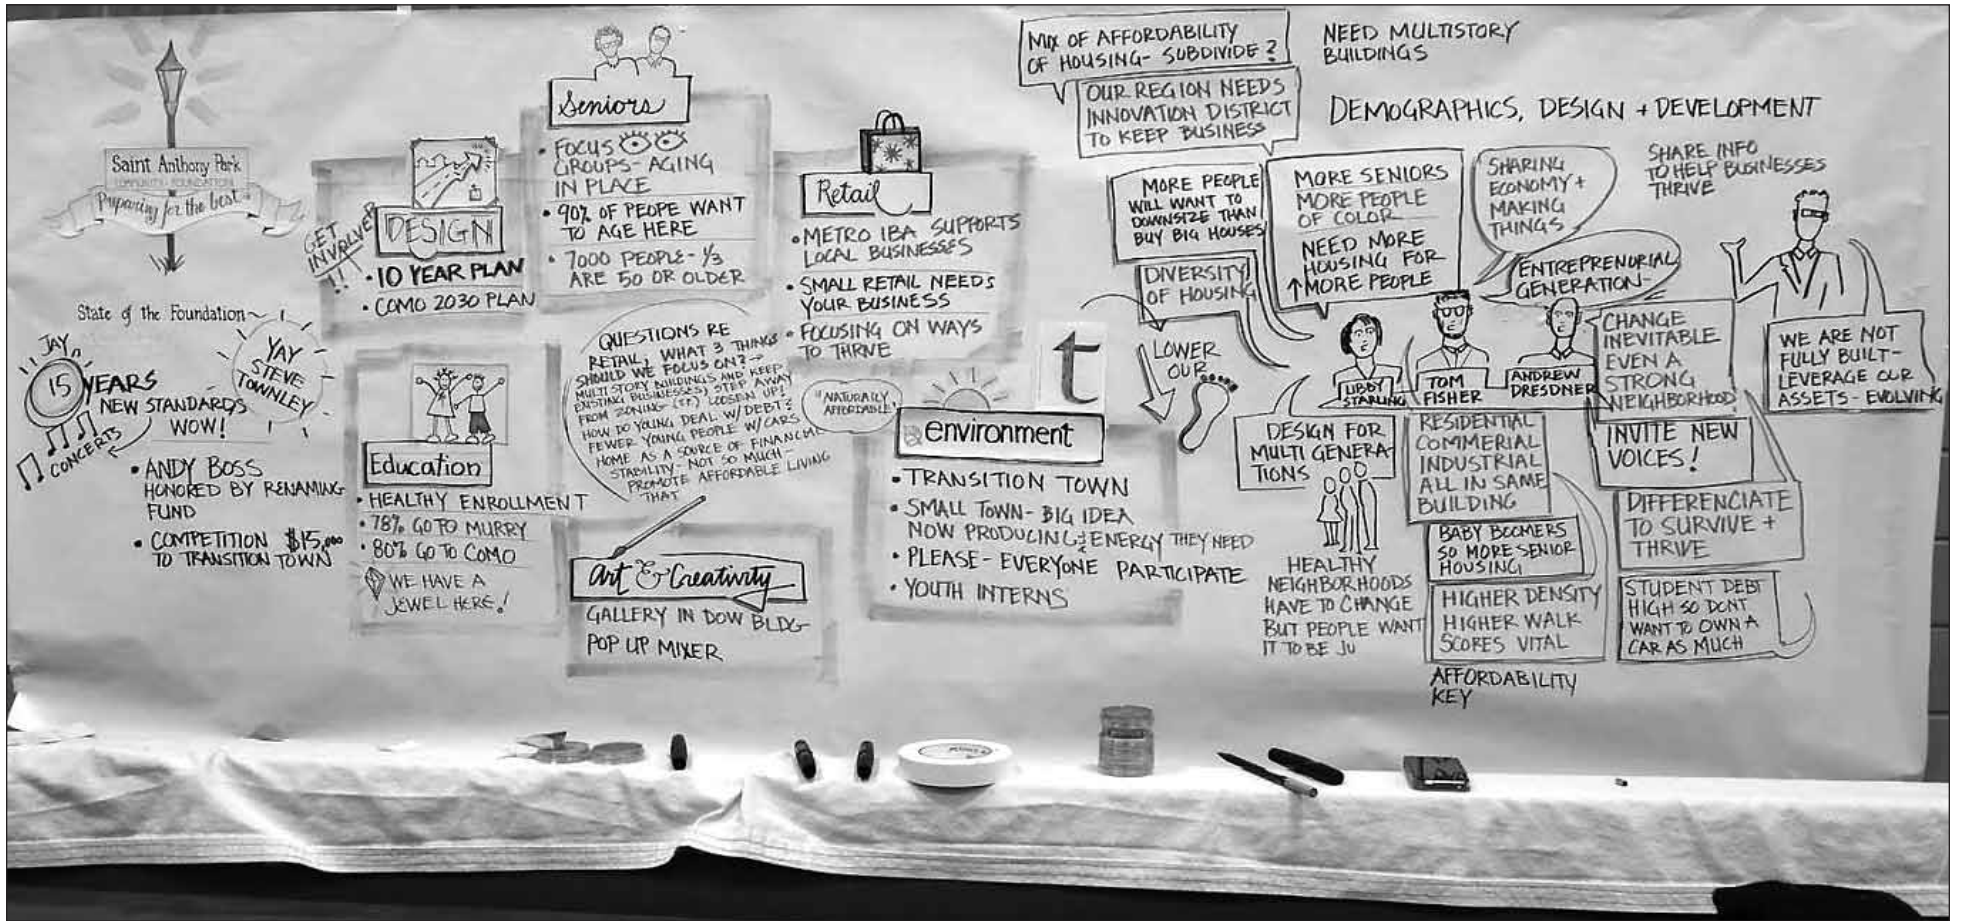 Saint Anthony Park
COMMUNITY FOUNDATION
Preparing for the best
State of the Foundation
JAY
15 YEARS
YAY
STEVE
TOWNLEY
NEW STANDARDS
WOW!
CONCERTS
• ANDY BOSS
HONORED BY RENAMING
FUND
• COMPETITION $15,000
TO TRANSITION TOWN
GET
INVOLVED
!!
DESIGN
• 10 YEAR PLAN
• COMO 2030 PLAN
Seniors
• FOCUS
GROUPS - AGING
IN PLACE
• 90% OF PEOPE WANT
TO AGE HERE
• 7000 PEOPLE - 1/3
ARE 50 OR OLDER
Education
• HEALTHY ENROLLMENT
• 78% GO TO MURRY
• 80% GO TO COMO
WE HAVE A
JEWEL HERE!
QUESTIONS RE
RETAIL, WHAT 3 THINGS
SHOULD WE FOCUS ON? →
MULTISTORY BUILDINGS, AND KEEP
EXISTING BUSINESSES, STEP AWAY
FROM ZONING LOOSEN UP!
HOW DO YOUNG DEAL W/DEBT?
FEWER YOUNG PEOPLE W/CARS
HOME AS A SOURCE OF FINANCIAL
STABILITY - NOT SO MUCH -
PROMOTE AFFORDABLE LIVING
THAT
Art & Creativity
GALLERY IN DOW BLDG
POP UP MIXER
Retail
• METRO IBA SUPPORTS
LOCAL BUSINESSES
• SMALL RETAIL NEEDS
YOUR BUSINESS
• FOCUSING ON WAYS
TO THRIVE
"NATURALLY
AFFORDABLE"
t
environment
• TRANSITION TOWN
• SMALL TOWN - BIG IDEA
NOW PRODUCING ENERGY THEY NEED
• PLEASE - EVERYONE PARTICIPATE
• YOUTH INTERNS
LOWER
OUR
MIX OF AFFORDABILITY
OF HOUSING - SUBDIVIDE?
OUR REGION NEEDS
INNOVATION DISTRICT
TO KEEP BUSINESS
NEED MULTISTORY
BUILDINGS
DEMOGRAPHICS, DESIGN + DEVELOPMENT
MORE PEOPLE
WILL WANT TO
DOWNSIZE THAN
BUY BIG HOUSES
DIVERSITY
OF HOUSING
MORE SENIORS
MORE PEOPLE
OF COLOR
NEED MORE
HOUSING FOR
↑MORE PEOPLE
SHARING
ECONOMY +
MAKING
THINGS
ENTREPRENORIAL
GENERATION-
SHARE INFO
TO HELP BUSINESSES
THRIVE
LIBBY
STARLING
TOM
FISHER
ANDREW
DRESDNER
CHANGE
INEVITABLE
EVEN A
STRONG
NEIGHBORHOOD
WE ARE NOT
FULLY BUILT-
LEVERAGE OUR
ASSETS - EVOLVING
DESIGN FOR
MULTI GENERA-
TIONS
HEALTHY
NEIGHBORHOODS
HAVE TO CHANGE
BUT PEOPLE WANT
IT TO BE JU
RESIDENTIAL
COMMERIAL
INDUSTRIAL
ALL IN SAME
BUILDING
BABY BOOMERS
SO MORE SENIOR
HOUSING
HIGHER DENSITY
HIGHER WALK
SCORES VITAL
AFFORDABILITY
KEY
INVITE NEW
VOICES!
DIFFERENCIATE
TO SURVIVE +
THRIVE
STUDENT DEBT
HIGH SO DONT
WANT TO OWN A
CAR AS MUCH